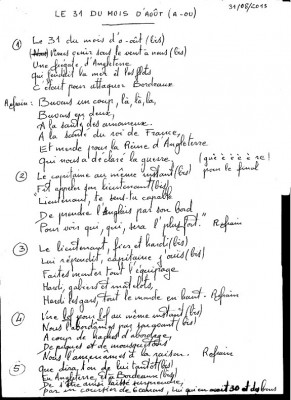 LE 31 DU MOIS D'AOÛT (A-OU)
31/08/2013
① Le 31 du mois d'a-oût (bis)
Nous vîmes venir sous le vent à nous (bis)
Une frégate d'Angleterre
Qui fendait la mer et les flots
C'était pour attaquer Bordeaux
Refrain: Buvons un coup, là, là, la,
Buvons en deux,
A la santé des amoureux
A la santé du roi de France,
Et merde pour la Reine d'Angleterre
Qui nous a déclaré la guerre
(guè è è è è re !
pour le final
② Le capitaine au même instant (bis)
Fit appeler son lieutenant (bis)
"Lieutenant, te sens-tu capable
De prendre l'Anglais par son bord
Pour voir qui, qui, sera l'plus fort." Refrain
③ Le lieutenant, fier et hardi (bis)
Lui répondit, capitaine, oui (bis)
Faites monter tout l'équipage
Hardi, gabiers et matelots,
Hardi les gars, tout le monde en haut - Refrain
④ Vire lof pour lof au même instant (bis)
Nous l'abordâmes par
A coups de haches d'abordage,
De piques et de mousquetons
Nous l'amenâmes à la raison. Refrain
⑤ Que dira-t-on de lui tantôt (bis)
En Angleterre et à Bordeaux (bis)
De s'être ainsi laissé surprendre,
par un corsaire de 6 canons, lui qu'en avait 30 et des bons